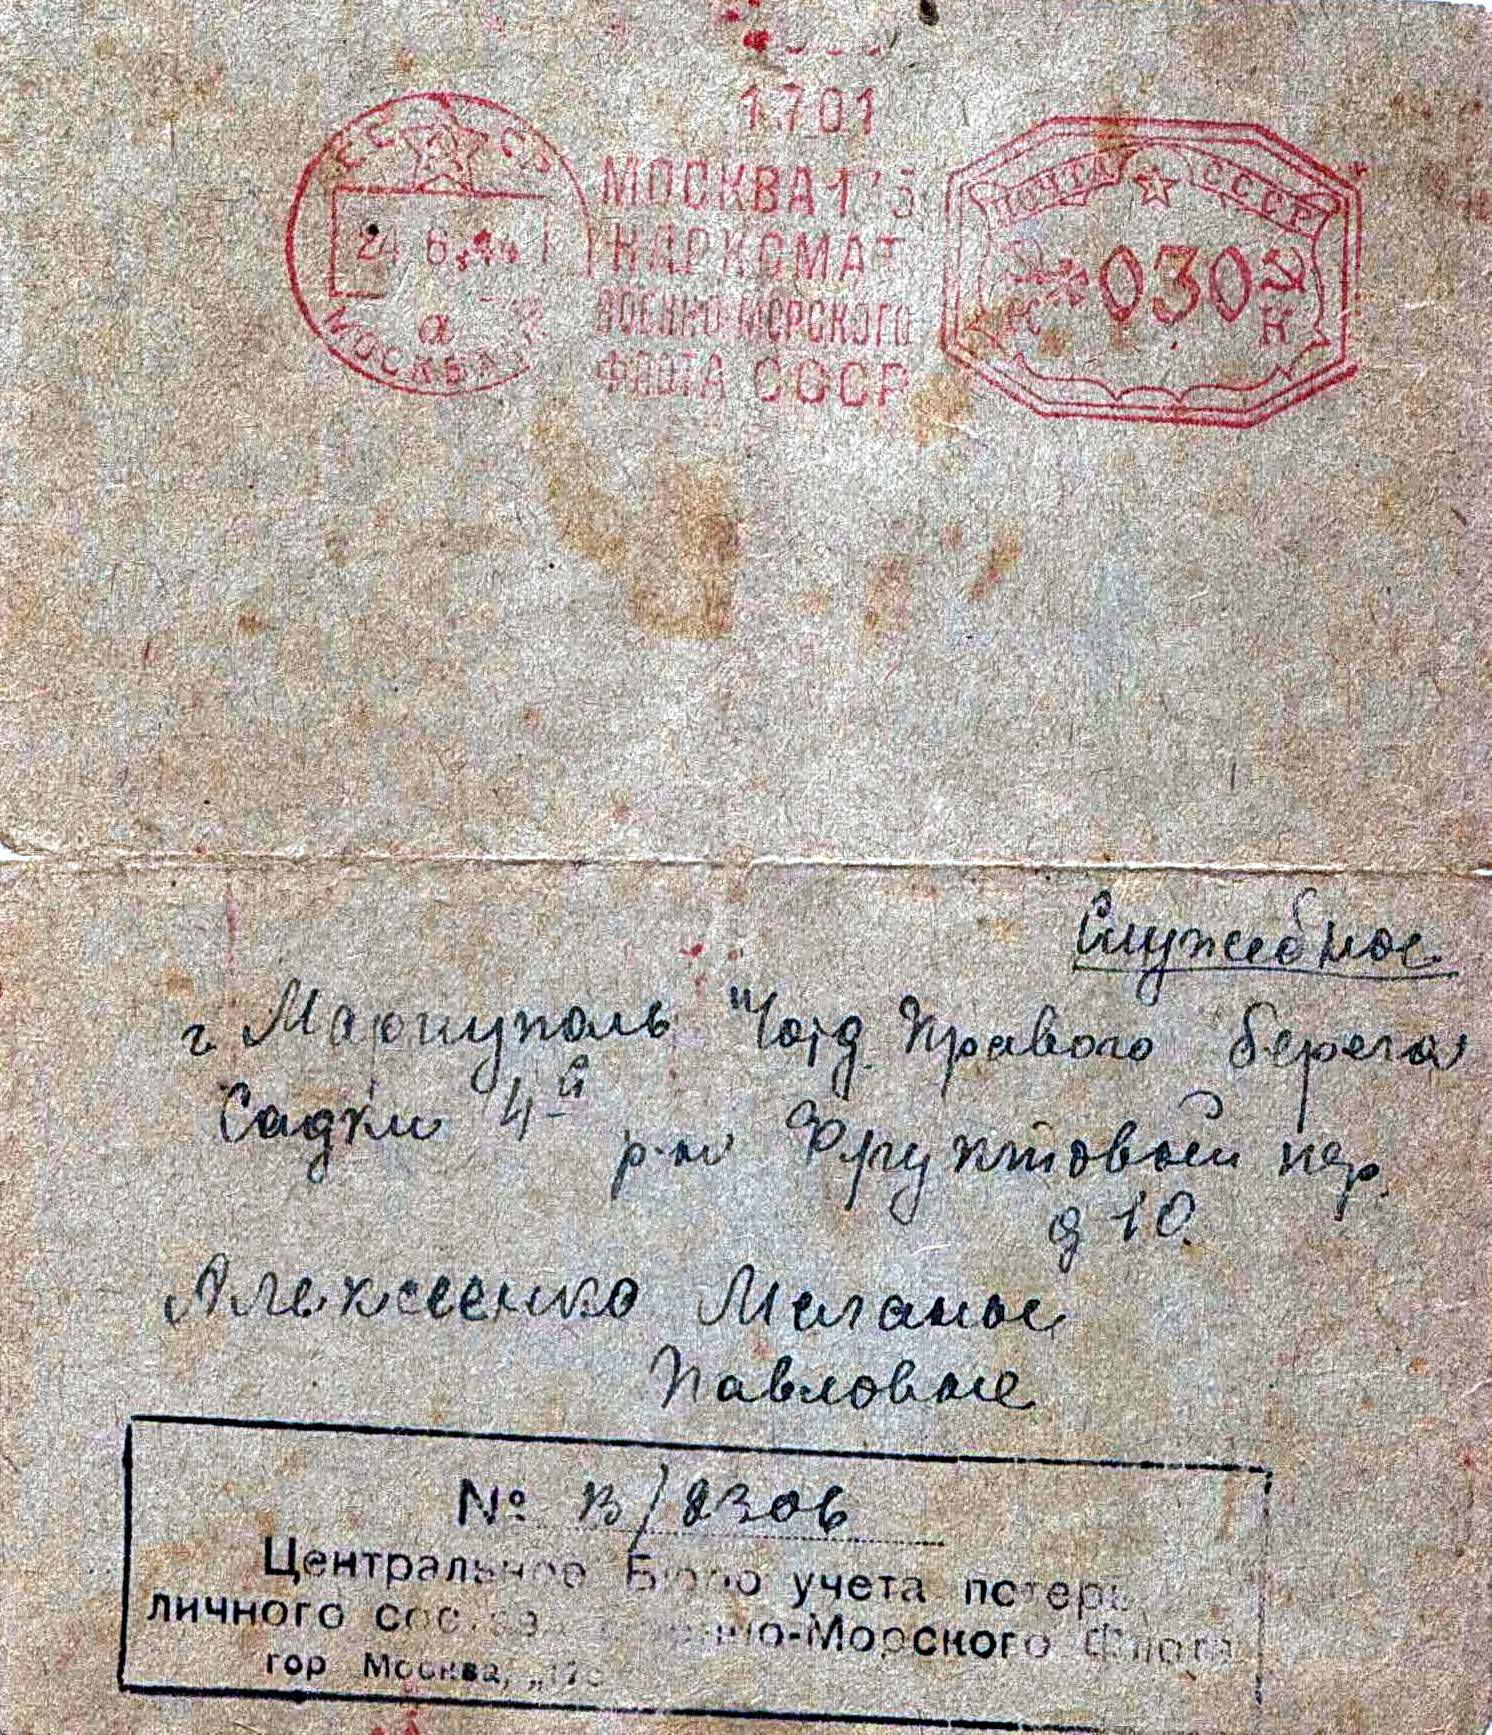 1701
СССР
МОСКВА 175
НАРКОМАТ
ВОЕННО-МОРСКОГО
ФЛОТА СССР
24 6
а
МОСКВА
ПОЧТА СССР
030
К
Служебное
г. Мариуполь Правого берега
Садки 4й р-н Фруктовый пер.
д 10.
Алексеенко Мелание
Павловне
№ В/8306
Центральное Бюро учета потерь
личного состава Военно-Морского Флота
гор Москва,